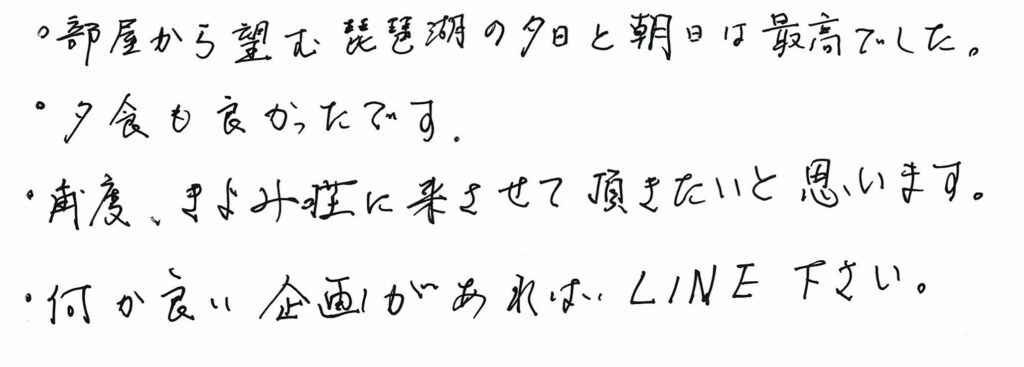 ・部屋から望む琵琶湖の夕日と朝日は最高でした。
・夕食も良かったです.
・再度、きよみ荘に来させて頂きたいと思います。
・何か良い企画があれば、LINE下さい。